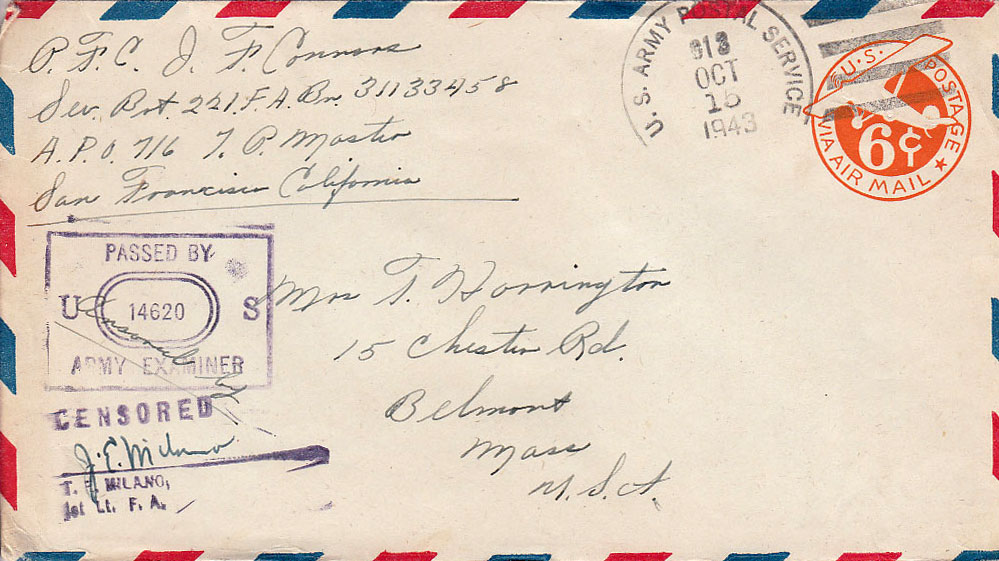 P.F.C. J. F. Connors
Ser. Bat 221 F.A. Bn. 31133458
A.P.O. 716 % P. Master
San Francisco California
U.S. ARMY POSTAL SERVICE
OCT
15
1943
U.S. POSTAGE
6¢
VIA AIR MAIL
PASSED BY
U 14620 S
ARMY EXAMINER
Censored by
CENSORED
J. E. Milano
T. MILANO,
1st Lt. F. A.
Mrs T. Horrington
15 Chester Rd.
Belmont
Mass
U.S.A.